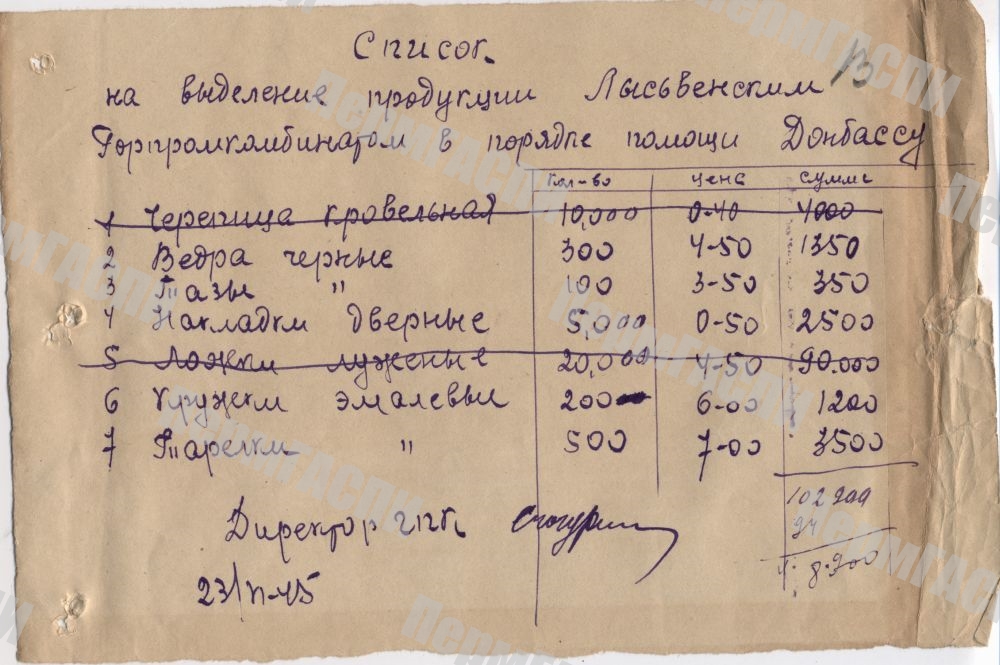 Список
13
на выделение продукции Лысьвенским
Горпромкомбинатом в порядке помощи Донбассу
Кол-во цена сумма
1 Черепица кровельная 10,000 0-40 4000
2 Ведра черные 300 4-50 1350
3 Тазы " 100 3-50 350
4 Накладки дверные 5,000 0-50 2500
5 Ложки луженые 20,000 4-50 90.000
6 Кружки эмалевые 200 6-00 1200
7 Тарелки " 500 7-00 3500
102 900
94
8.900
Директор ГПК
23/II-45
ПермГАСПИ